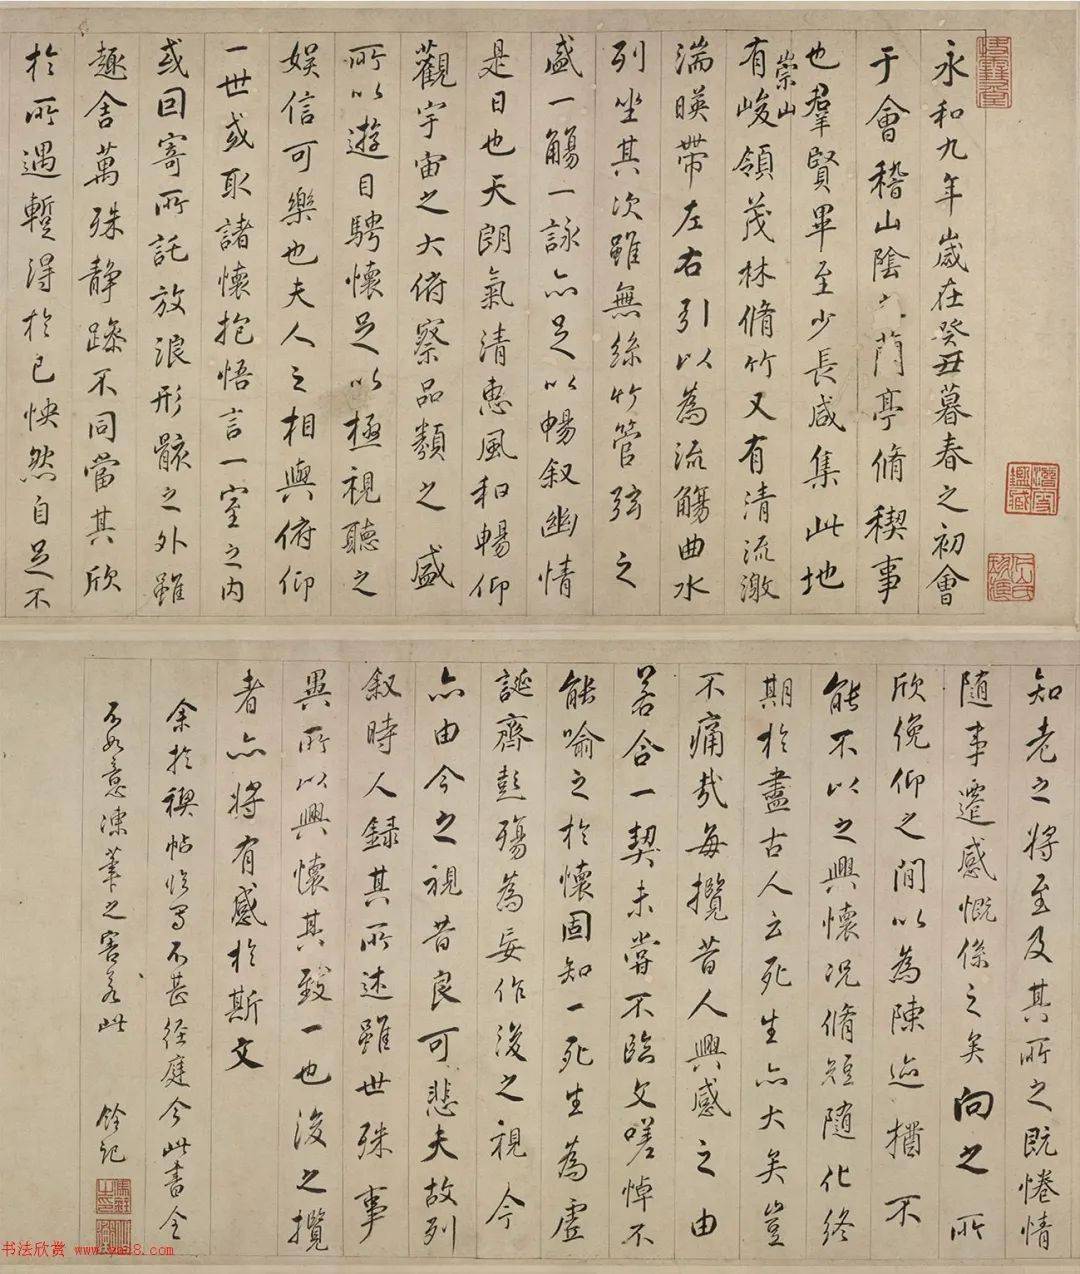 永和九年歲在癸丑暮春之初會
于會稽山陰之蘭亭脩稧事
也羣賢畢至少長咸集此地
有崇山峻領茂林脩竹又有清流激
湍暎帶左右引以為流觴曲水
列坐其次雖無絲竹管弦之
盛一觴一詠亦足以暢叙幽情
是日也天朗氣清惠風和暢仰
觀宇宙之大俯察品類之盛
所以遊目騁懷足以極視聽之
娛信可樂也夫人之相與俯仰
一世或取諸懷抱悟言一室之内
或因寄所託放浪形骸之外雖
趣舍萬殊静躁不同當其欣
於所遇蹔得於己怏然自足不
知老之將至及其所之既惓情
隨事遷感慨係之矣向之所
欣俛仰之間以為陳迹猶不
能不以之興懷况脩短隨化終
期於盡古人云死生亦大矣豈
不痛哉每攬昔人興感之由
若合一契未甞不臨文嗟悼不
能喻之於懷固知一死生為虛
誕齊彭殤為妄作後之視今
亦由今之視昔良可悲夫故列
叙時人録其所述雖世殊事
異所以興懷其致一也後之攬
者亦將有感於斯文
余於禊帖臨寫不甚徑庭今此書全
不如意凍筆之害若此 銓記
书法欣赏 www.yac8.com